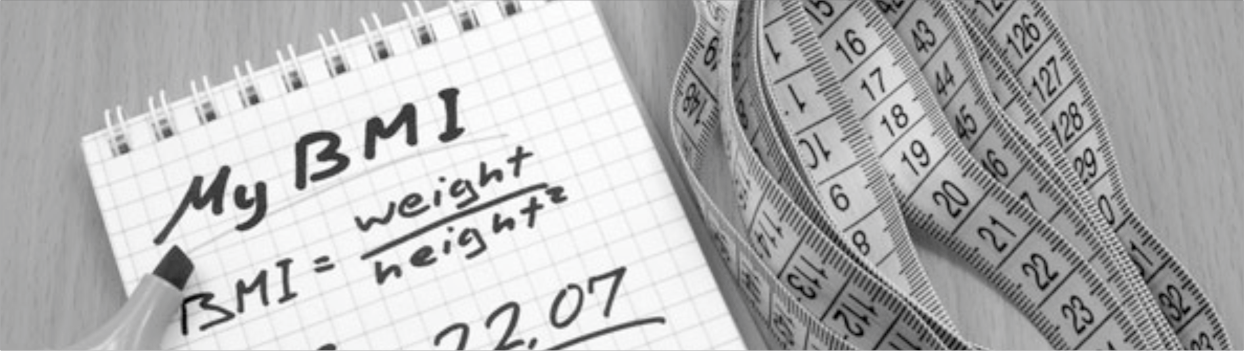 My BMI
BMI = weight / height²
22.07
15
16
17
18
19
20
21
22
23
43
44
45
126
127
128
29
32
10
9
8
114
113
112